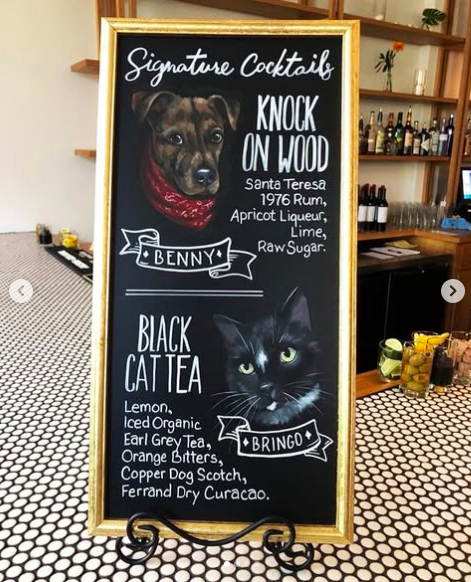 Signature Cocktails
KNOCK
ON WOOD
Santa Teresa
1976 Rum,
Apricot Liqueur,
Lime,
Raw Sugar.
BENNY
BLACK
CAT TEA
Lemon,
Iced Organic
Earl Grey Tea,
Orange Bitters,
Copper Dog Scotch,
Ferrand Dry Curacao.
BRINGO